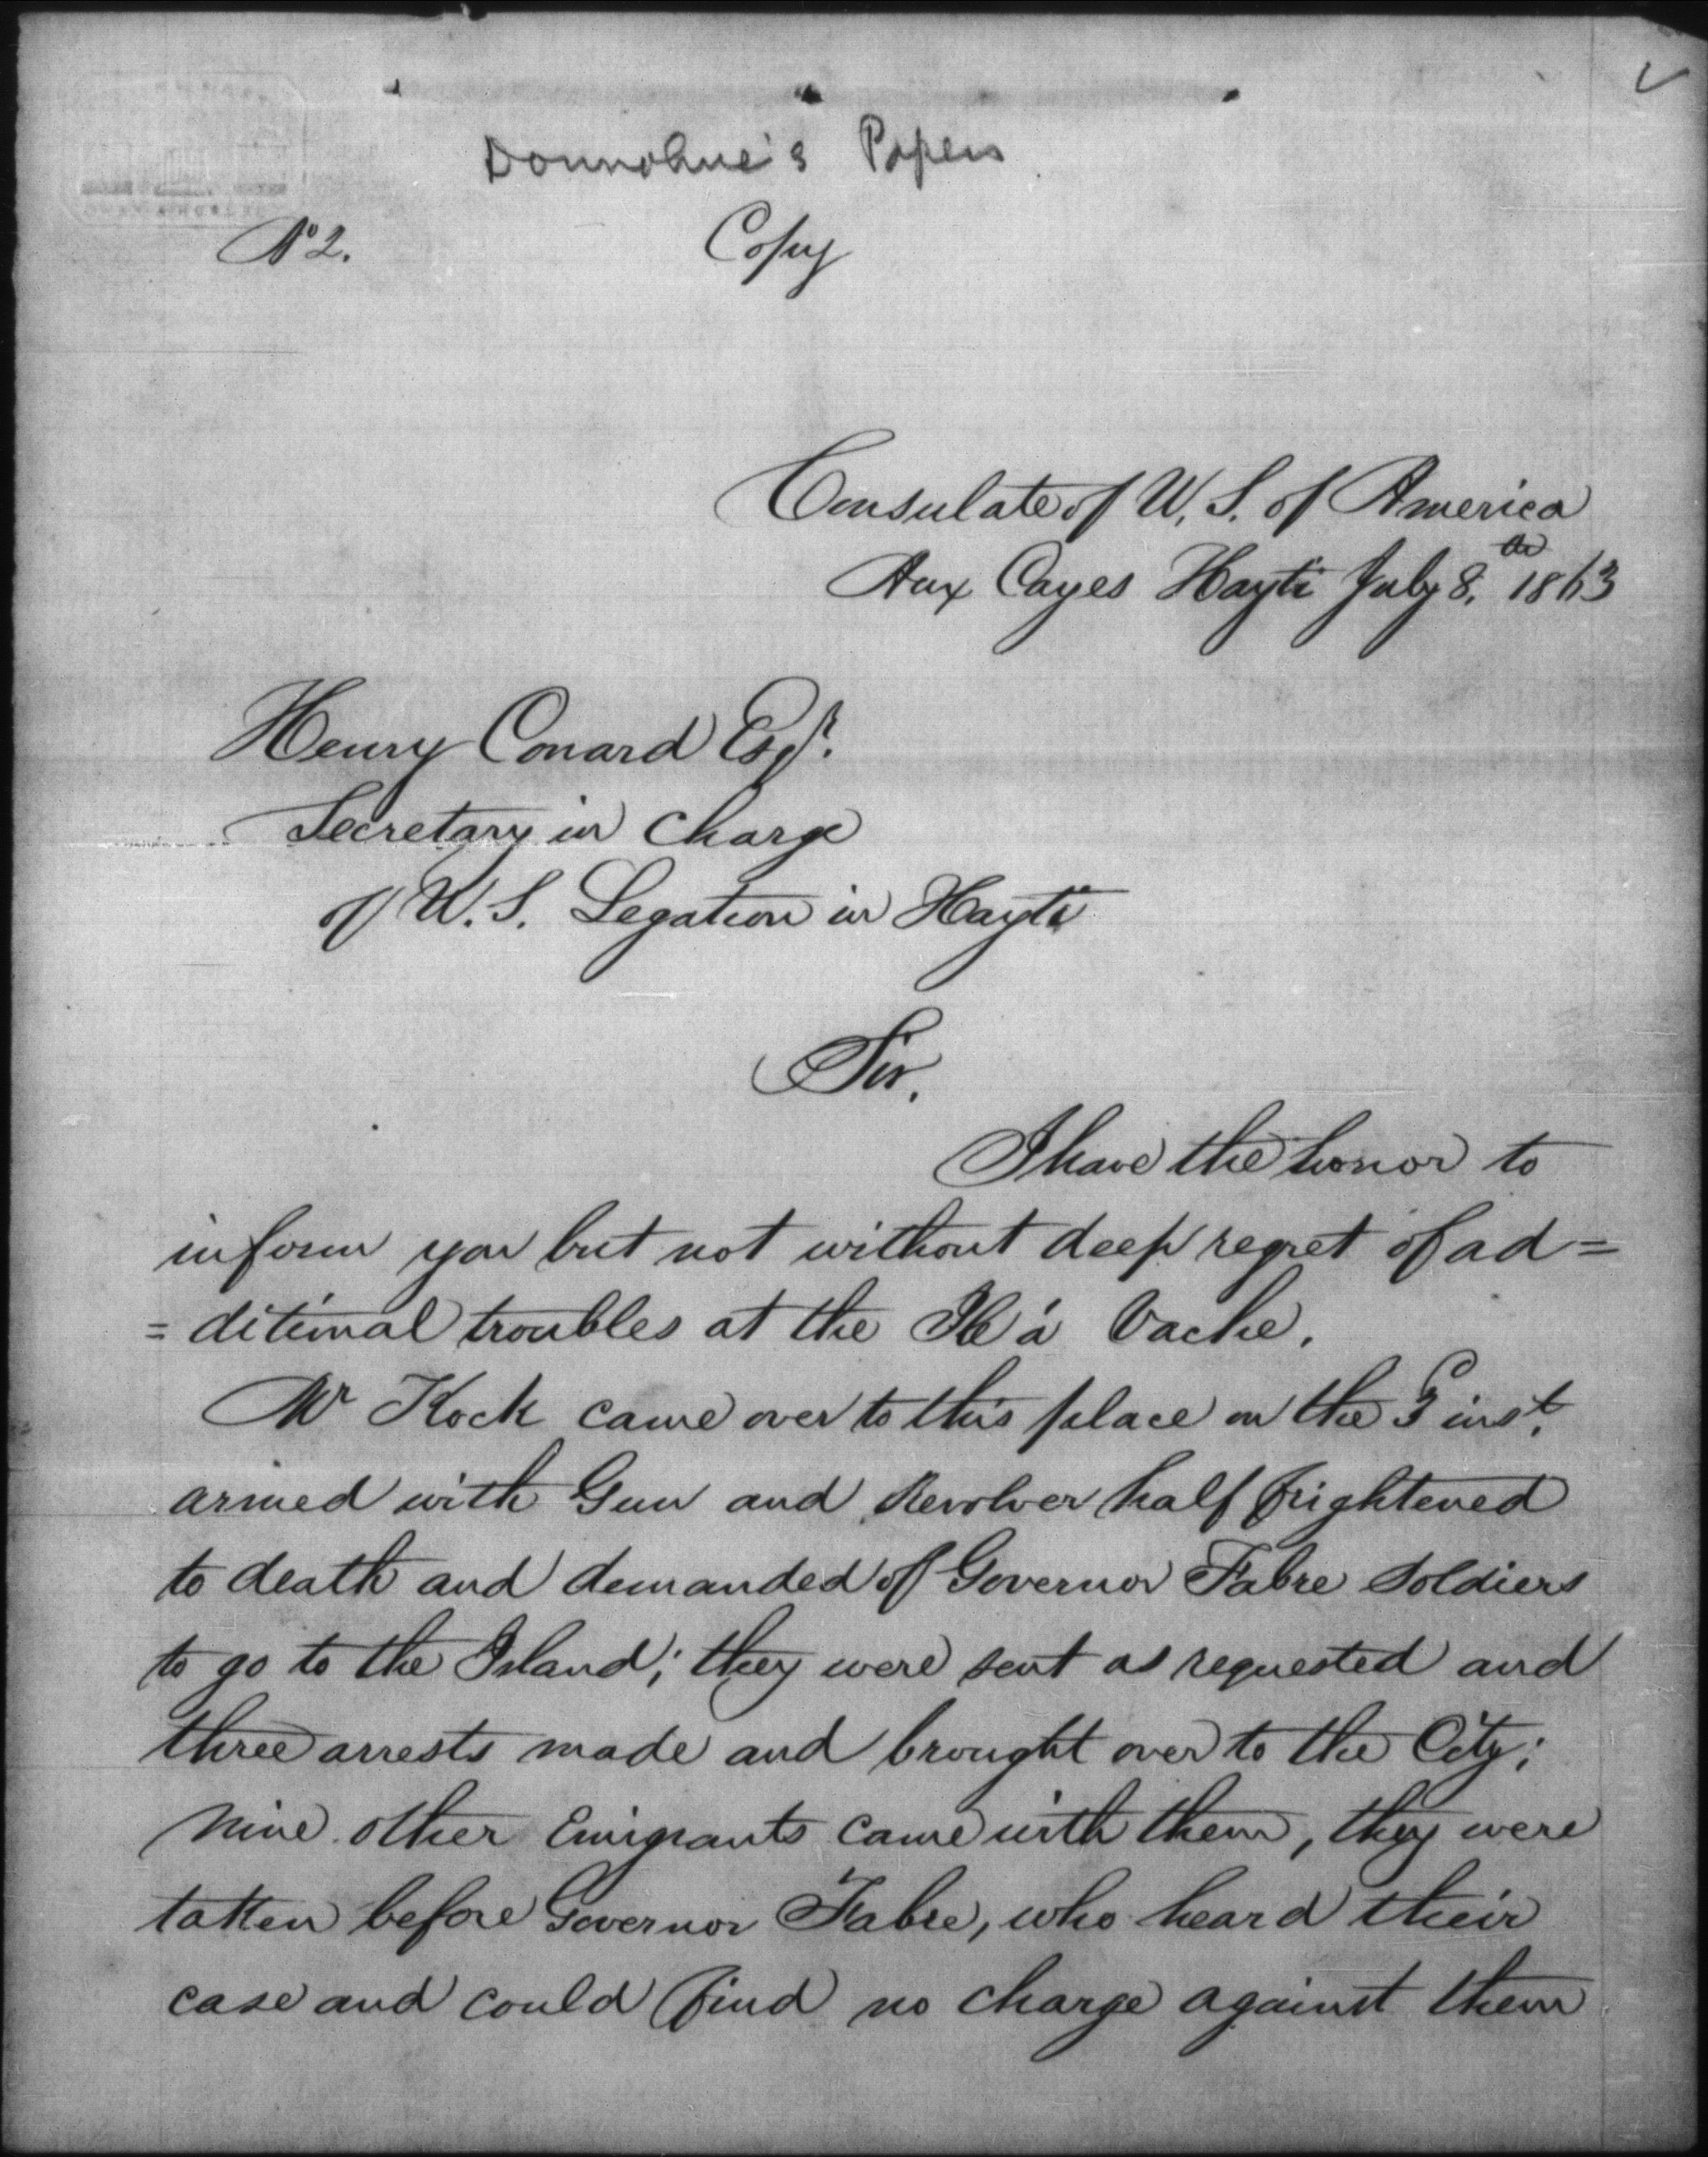 Donnohue's Papers
No 2.
Copy
Consulate of U. S. of America
Aux Cayes Hayti July 8th 1863
Henry Conard Esqr.
Secretary in charge
of U. S. Legation in Hayti
Sir,
I have the honor to
inform you but not without deep regret of ad=
=ditional troubles at the Ile á Vache.
Mr Kock came over to this place on the 3 inst.
armed with Gun and Revolver half frightened
to death and demanded of Governor Fabre Soldiers
to go to the Island; they were sent as requested and
three arrests made and brought over to the City;
nine other Emigrants came with them, they were
taken before Governor Fabre, who heard their
case and could find no charge against them